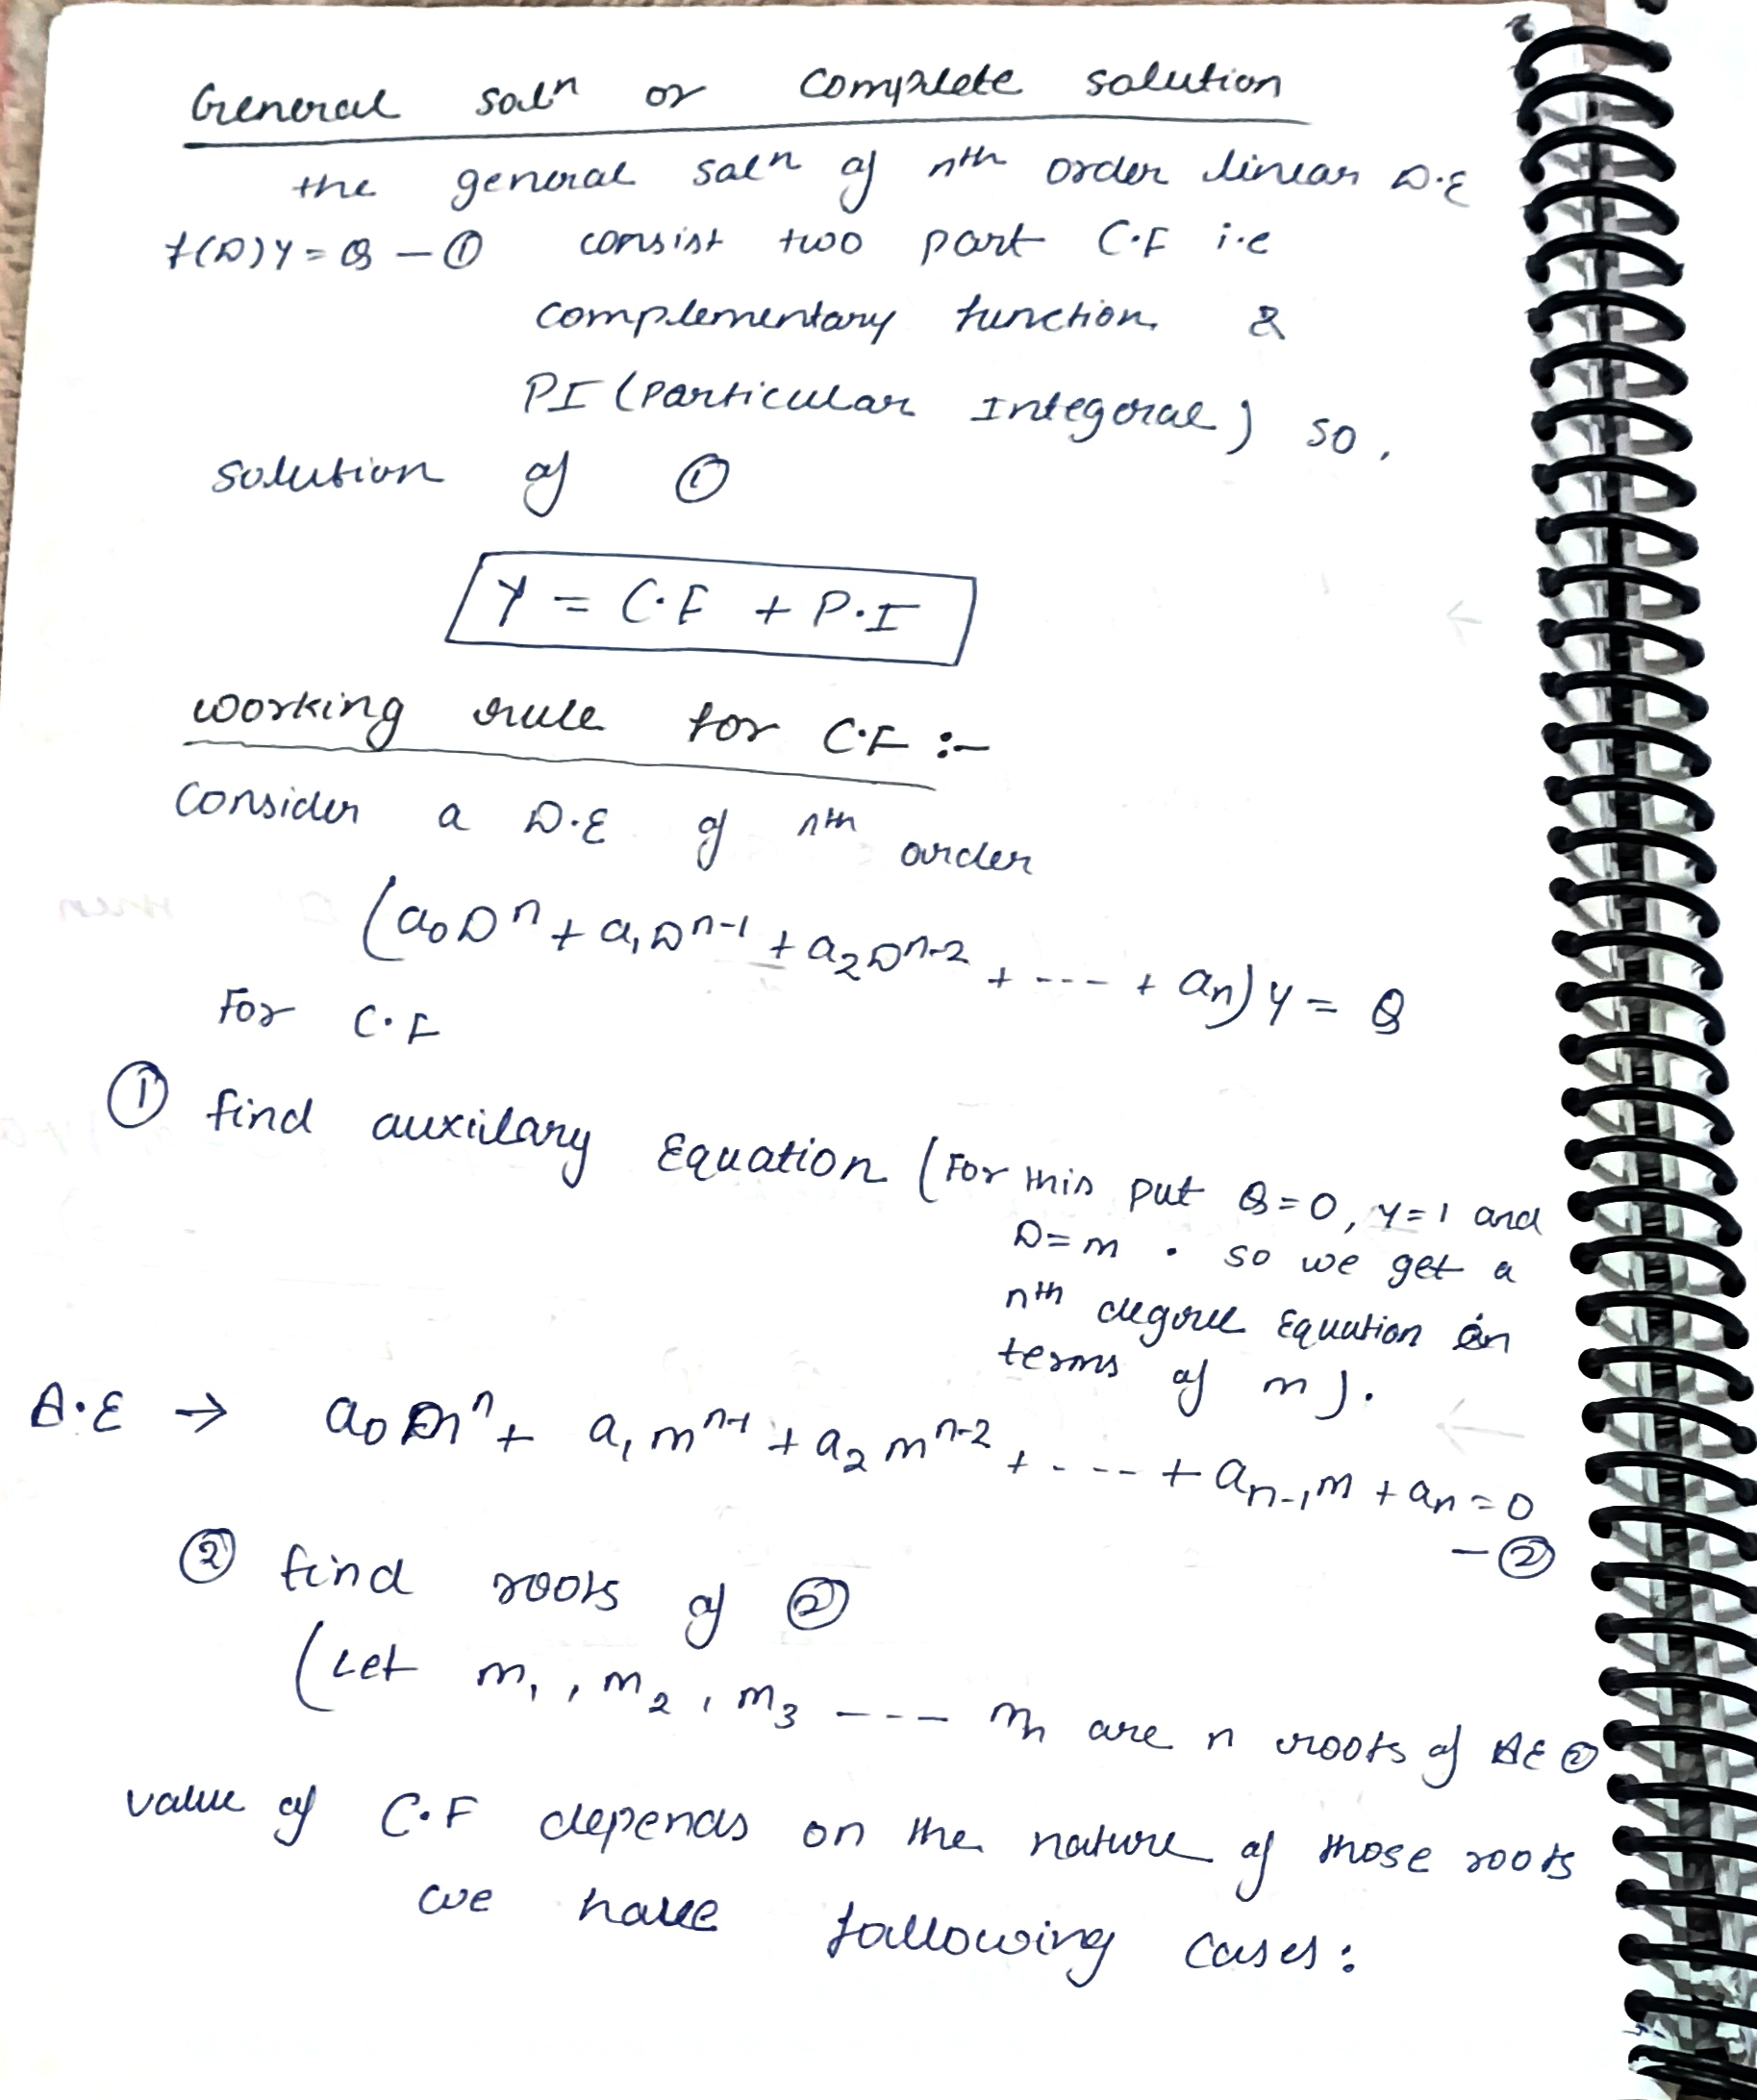 General solⁿ or complete solution
the general solⁿ of nᵗʰ order linear D.E
f(D)y = Q — ① consist two part C.F i.e
complementary function &
PI (Particular Integral) so,
solution of ①
Y = C.F + P.I
working rule for C.F :-
Consider a D.E of nᵗʰ order
(a₀Dⁿ + a₁Dⁿ⁻¹ + a₂Dⁿ⁻² + ---- + aₙ)y = Q
For C.F
① find auxiilary Equation (For this put Q=0, y=1 and
D=m . so we get a
nᵗʰ degree Equation in
terms of m).
A.E → a₀mⁿ + a₁mⁿ⁻¹ + a₂mⁿ⁻² + ---- + aₙ₋₁m + aₙ = 0
— ②
② find roots of ②
(Let m₁, m₂, m₃ ---- mₙ are n roots of AE ②
value of C.F depends on the nature of those roots
we have following cases: